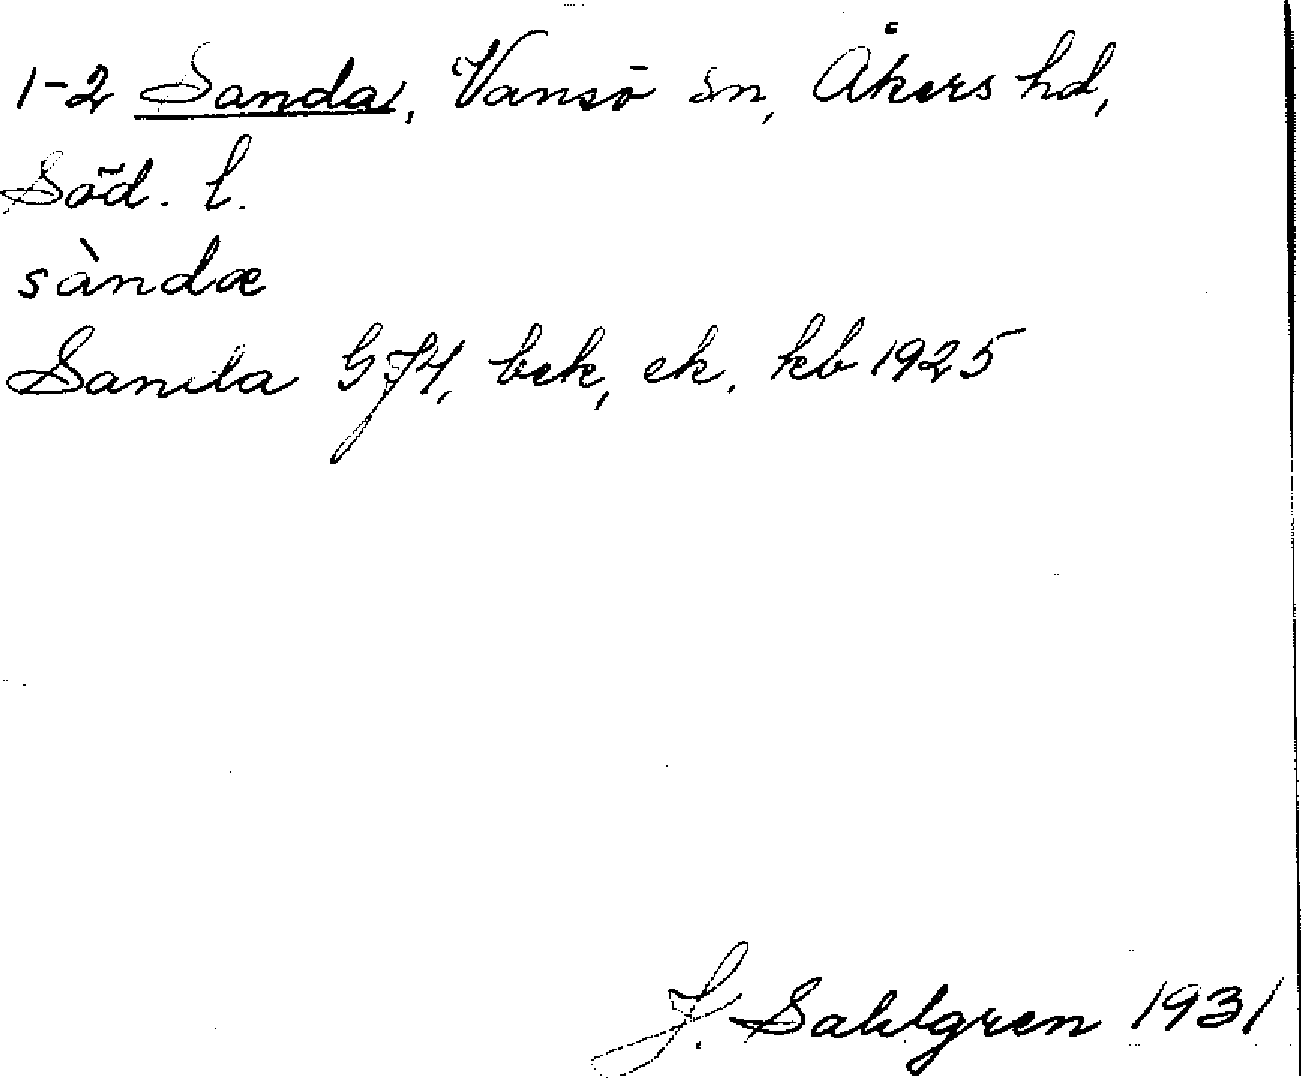 1-2 Sanda, Vansö sn, Åkers hd,
Söd. l.
sàndæ
Sanda GJ4, bek, ek, kb 1925
J. Sahlgren 1931